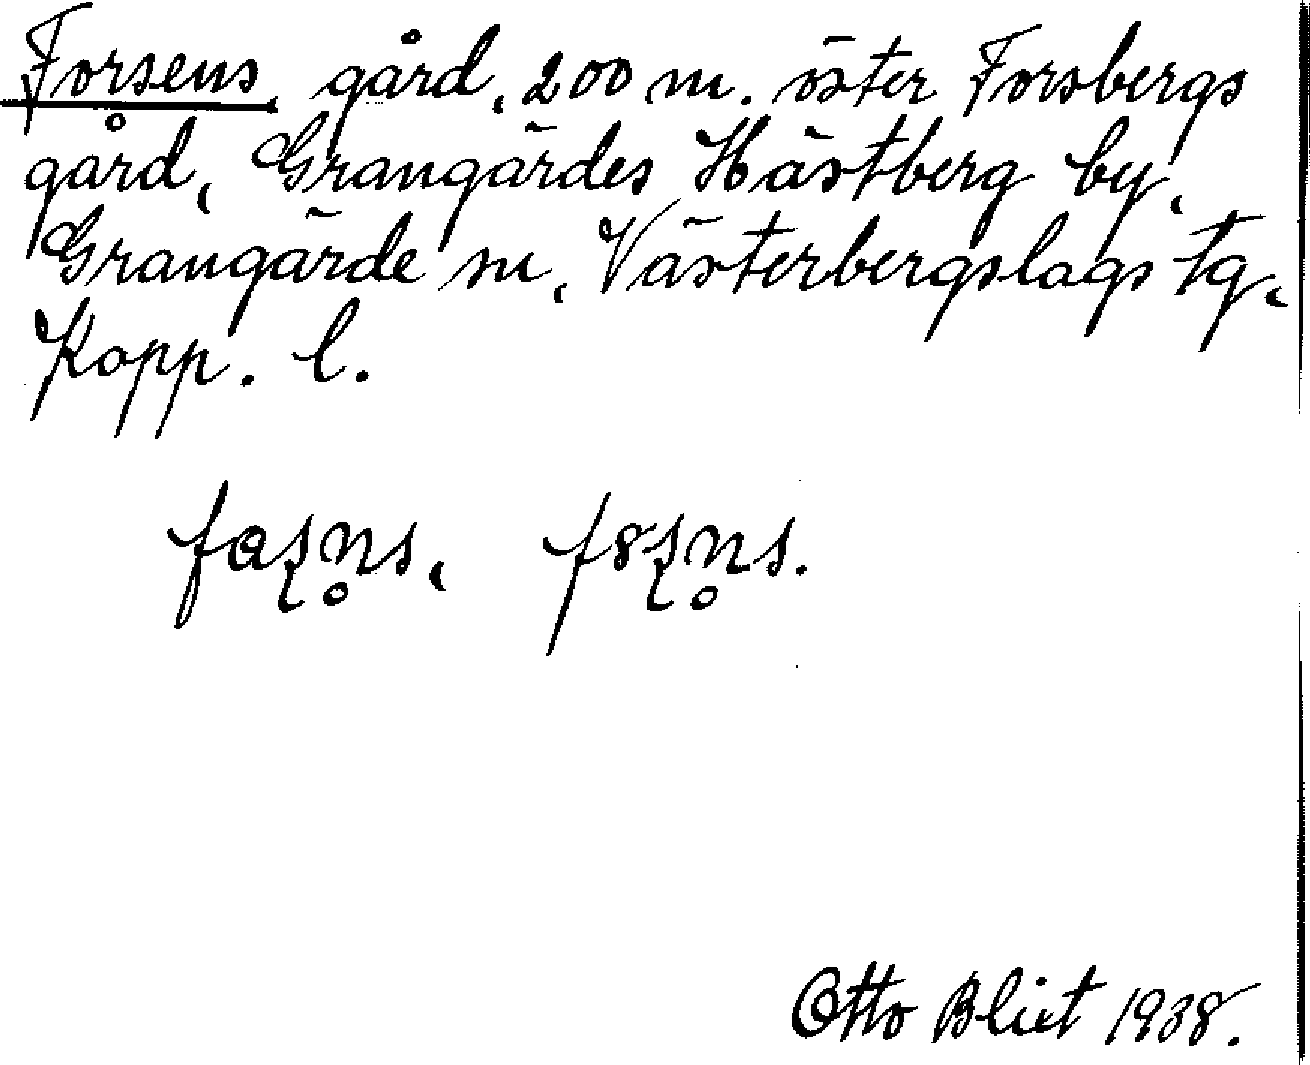 Forsens, gård, 200 m. öster Forsbergs
gård, Grangärdes Hästberg by,
Grangärde sn, Västerbergslags tg,
Kopp. l.
Otto Blixt 1938.